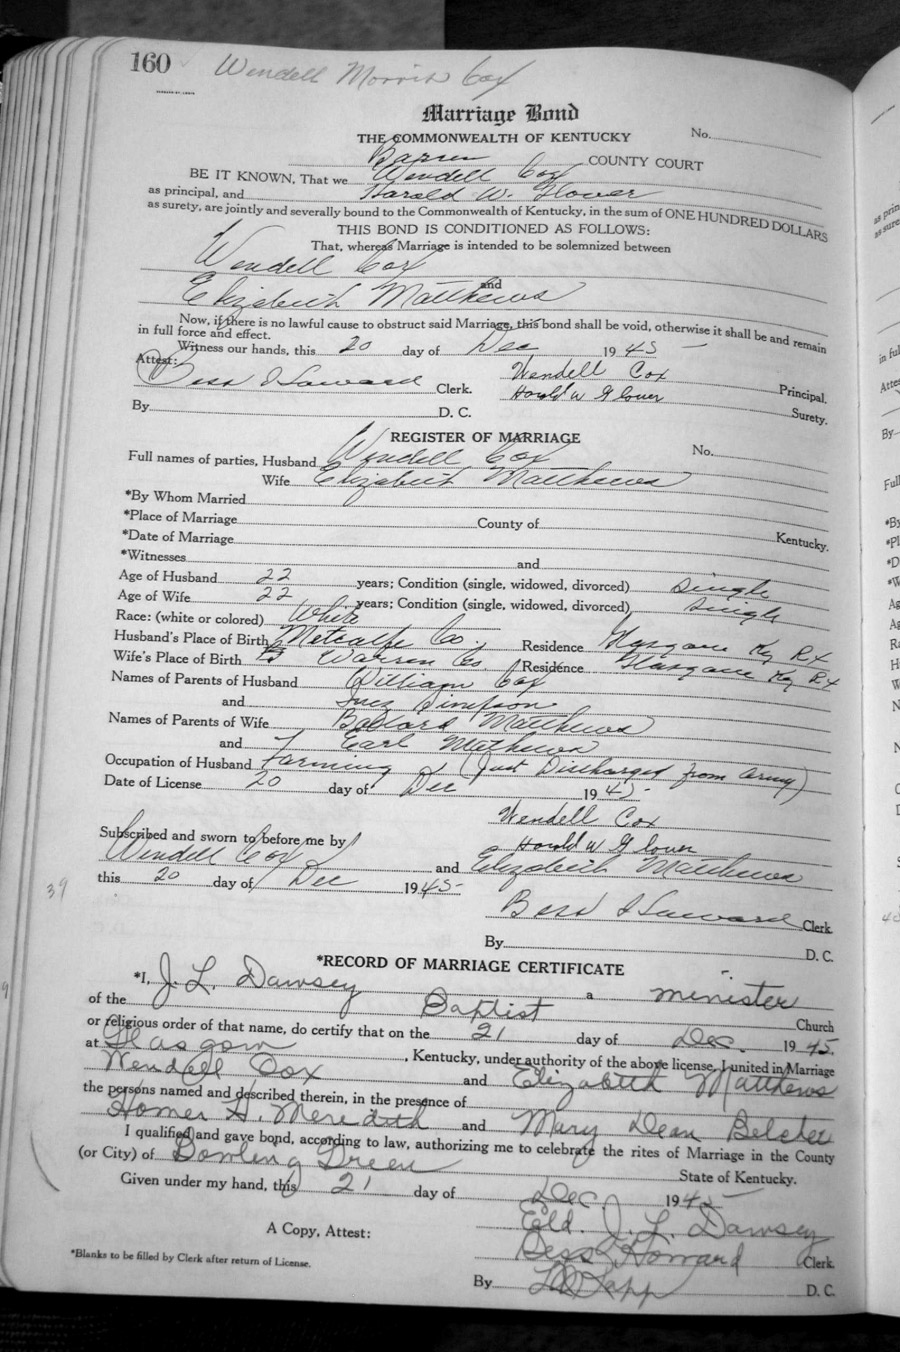 160 Wendell Morris Cox
Marriage Bond
THE COMMONWEALTH OF KENTUCKY No.
Barren COUNTY COURT
BE IT KNOWN, That we Wendell Cox
as principal, and Harold W. Glover
as surety, are jointly and severally bound to the Commonwealth of Kentucky, in the sum of ONE HUNDRED DOLLARS
THIS BOND IS CONDITIONED AS FOLLOWS:
That, whereas Marriage is intended to be solemnized between
Wendell Cox
and
Elizabeth Matthews
Now, if there is no lawful cause to obstruct said Marriage, this bond shall be void, otherwise it shall be and remain
in full force and effect.
Witness our hands, this 20 day of Dec 1945
Attest: Wendell Cox Principal.
Bess Howard Clerk. Harold W Glover Surety.
By D. C.
REGISTER OF MARRIAGE
Full names of parties, Husband Wendell Cox No.
Wife Elizabeth Matthews
*By Whom Married
*Place of Marriage County of Kentucky.
*Date of Marriage
*Witnesses and
Age of Husband 22 years; Condition (single, widowed, divorced) Single
Age of Wife 22 years; Condition (single, widowed, divorced) Single
Race: (white or colored) White
Husband's Place of Birth Metcalfe Co., Residence Glasgow Ky R
Wife's Place of Birth Warren Co Residence Glasgow Ky R
Names of Parents of Husband William Cox
and Inez Simpson
Names of Parents of Wife Ballard Matthews
and Earl Mathews
Occupation of Husband Farming (Just Discharged from Army)
Date of License 20 day of Dec 1945
Wendell Cox
Subscribed and sworn to before me by Harold W Glover
Wendell Cox and Elizabeth Matthews
39 this 20 day of Dec 1945
Bess Howard Clerk
By D. C.
*RECORD OF MARRIAGE CERTIFICATE
*I, J. L. Dawsey a minister
of the Baptist Church
or religious order of that name, do certify that on the 21 day of Dec. 1945.
at Glasgow, Kentucky, under authority of the above license, I united in Marriage
Wendell Cox and Elizabeth Matthews
the persons named and described therein, in the presence of
Homer H. Meredith and Mary Dean Belcher
I qualified and gave bond, according to law, authorizing me to celebrate the rites of Marriage in the County
(or City) of Bowling Green State of Kentucky.
Given under my hand, this 21 day of Dec 1945
Eld. J. L. Dawsey
A Copy, Attest: Bess Howard Clerk.
*Blanks to be filled by Clerk after return of License.
By D. C.